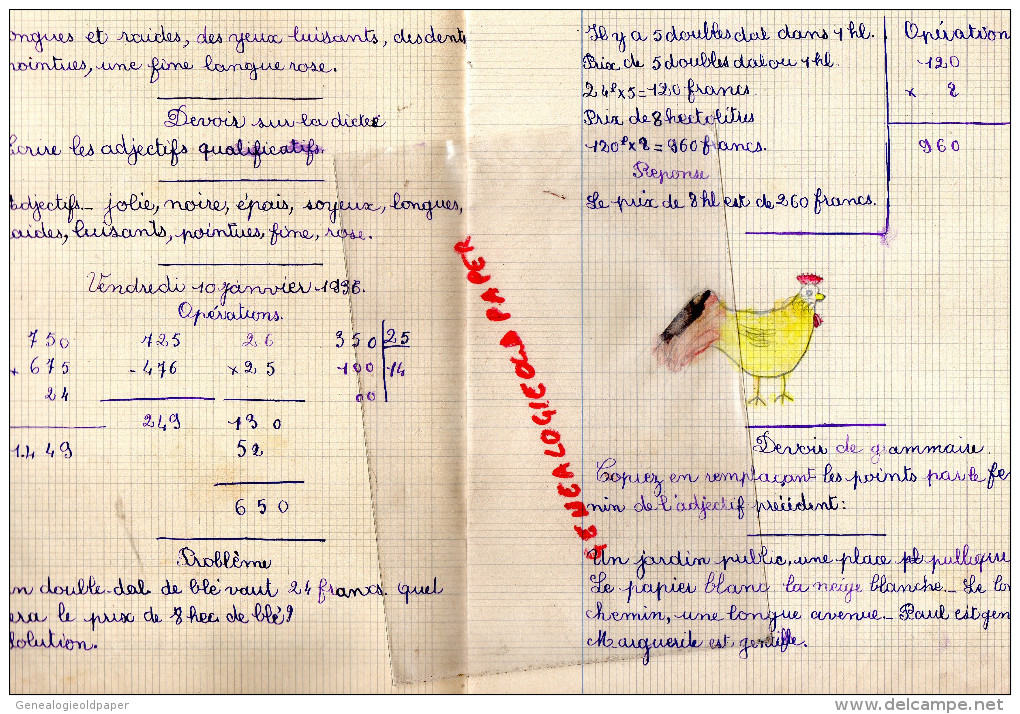 ongues et raides, des yeux luisants, des dents
pointues, une fine langue rose.
Devoir sur la dictée
Écrire les adjectifs qualificatifs.
Adjectifs - jolie, noire, épais, soyeux, longues,
raides, luisants, pointues, fine, rose.
Vendredi 10 janvier 1936.
Opérations.
750 725 26 350 25
+ 675 - 476 × 25 100 14
24 00
249 130
1449 52
650
Problème
n double-dal de blé vaut 24 francs. quel
era le prix de 8 hec de blé?
Solution.
Il y a 5 doubles dal dans 1 hl.
Prix de 5 doubles dal ou 1 hl.
24f × 5 = 120 francs.
Prix de 8 hectolitres
120f × 8 = 960 francs.
Réponse
Le prix de 8 hl est de 260 francs.
Opération
120
× 8
960
Devoir de grammaire.
Copiez en remplaçant les points par le fé
nin de l'adjectif précédent:
Un jardin public, une place pullique
Le papier blanc la neige blanche - Le lon
chemin, une longue avenue - Paul est gen
Marguerite est gentille.
GENEALOGIEOLDPAPER
Genealogieoldpaper
delcampe.net